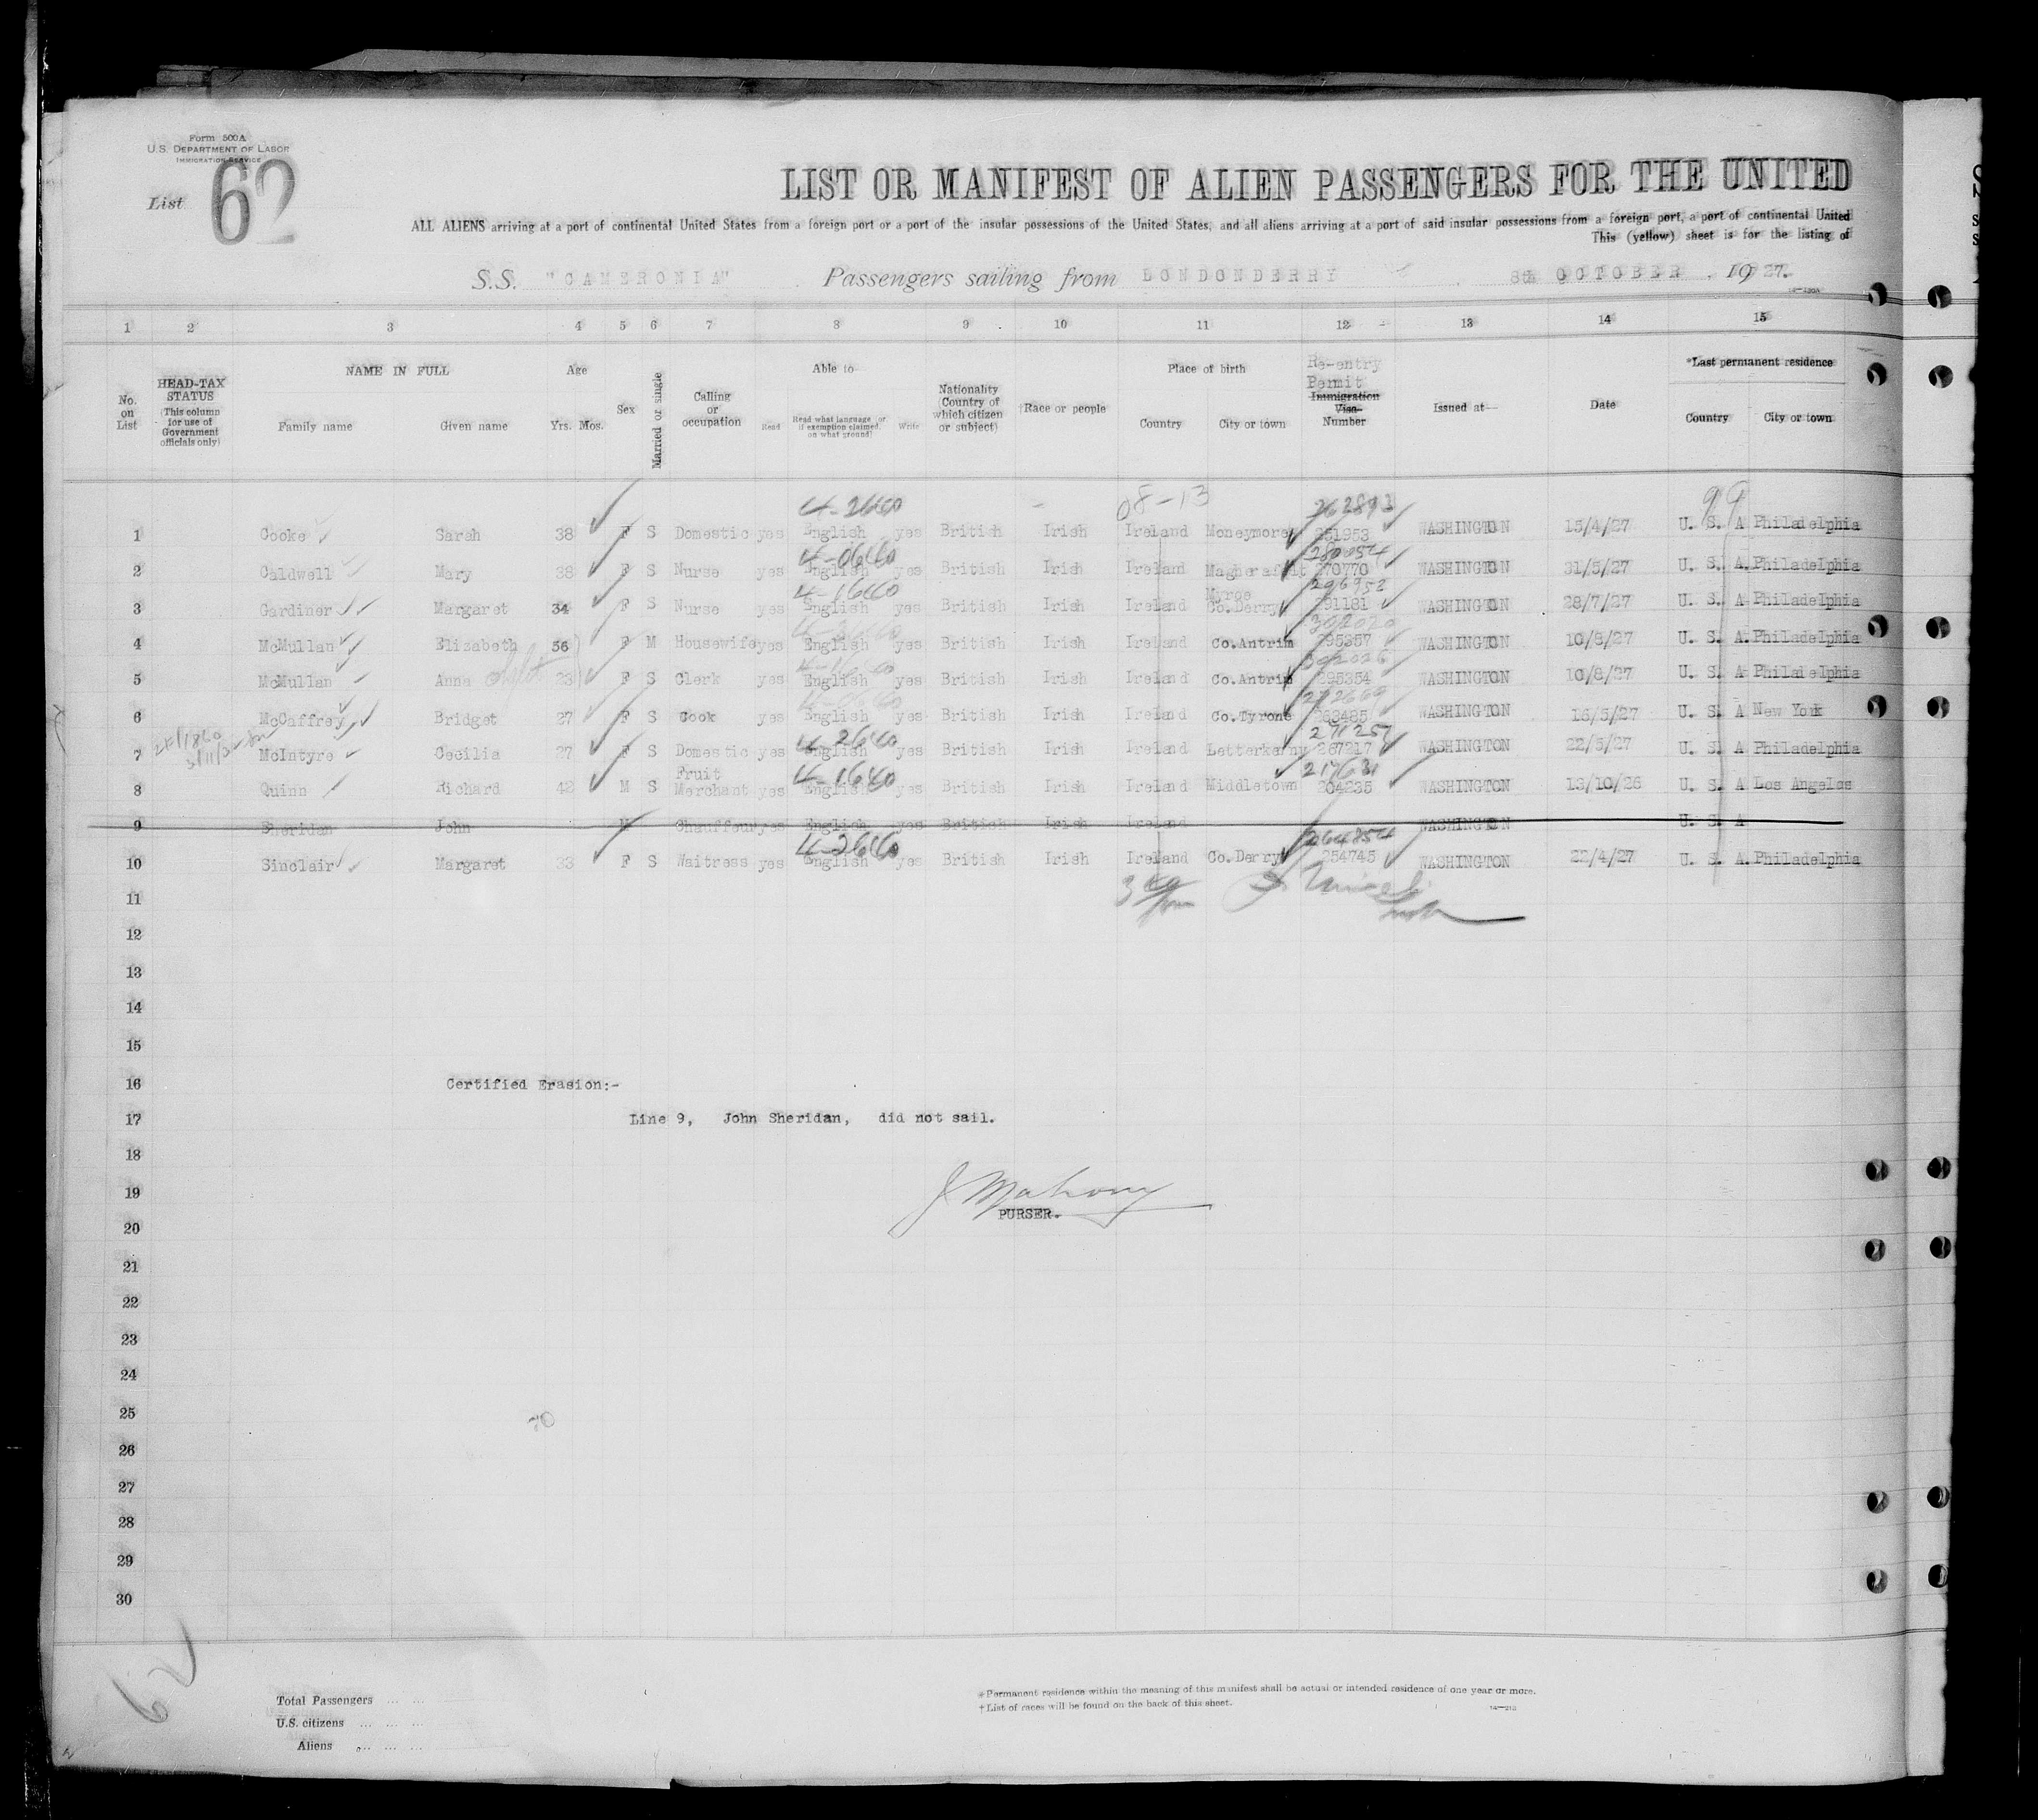 Form 500A
U.S. DEPARTMENT OF LABOR
IMMIGRATION SERVICE
List 62
LIST OR MANIFEST OF ALIEN PASSENGERS FOR THE UNITED
ALL ALIENS arriving at a port of continental United States from a foreign port or a port of the insular possessions of the United States, and all aliens arriving at a port of said insular possessions from a foreign port, a port of continental United
This (yellow) sheet is for the listing of
S.S. "CAMERONIA" Passengers sailing from LONDONDERRY 8th OCTOBER, 1927.
1 2 3 4 5 6 7 8 9 10 11 12 13 14 15
No. on List
HEAD-TAX STATUS (This column for use of Government officials only)
NAME IN FULL Family name Given name
Age Yrs. Mos.
Sex
Married or single
Calling or occupation
Able to— Read Read what language (or if exemption claimed, on what ground) Write
Nationality (Country of which citizen or subject)
†Race or people
Place of birth Country City or town
Re-entry Permit Immigration Visa Number
Issued at—
Date
*Last permanent residence Country City or town
4-2660 08-13 262893 99
1 Cooke Sarah 38 F S Domestic yes English yes British Irish Ireland Moneymore 251953 WASHINGTON 15/4/27 U. S. A Philadelphia
4-0660 280054
2 Caldwell Mary 38 F S Nurse yes English yes British Irish Ireland Magherafelt 270770 WASHINGTON 31/5/27 U. S. A. Philadelphia
4-1660 296952
3 Gardiner Margaret 34 F S Nurse yes English yes British Irish Ireland Myroe Co.Derry 291181 WASHINGTON 28/7/27 U. S. A. Philadelphia
302020
4 McMullan Elizabeth 56 F M Housewife yes English yes British Irish Ireland Co.Antrim 295357 WASHINGTON 10/8/27 U. S. A. Philadelphia
302026
5 McMullan Anna 23 F S Clerk yes English yes British Irish Ireland Co.Antrim 295354 WASHINGTON 10/8/27 U. S. A Philadelphia
272660
6 McCaffrey Bridget 27 F S Cook yes English yes British Irish Ireland Co.Tyrone 263485 WASHINGTON 16/5/27 U. S. A New York
4-2660 271257
7 McIntyre Cecilia 27 F S Domestic yes English yes British Irish Ireland Letterkenny 267217 WASHINGTON 22/5/27 U. S. A Philadelphia
4-1660 217631
8 Quinn Richard 42 M S Fruit Merchant yes English yes British Irish Ireland Middletown 204235 WASHINGTON 13/10/26 U. S. A Los Angeles
9 Sheridan John M Chauffeur yes English yes British Irish Ireland WASHINGTON U. S. A
4-2660 264854
10 Sinclair Margaret 33 F S Waitress yes English yes British Irish Ireland Co.Derry 254745 WASHINGTON 22/4/27 U. S. A. Philadelphia
11
12
13
14
15
16 Certified Erasion:-
17 Line 9, John Sheridan, did not sail.
18
19 J Mahony
20 PURSER.
21
22
23
24
25
26
27
28
29
30
62
Total Passengers
U.S. citizens
Aliens
*Permanent residence within the meaning of this manifest shall be actual or intended residence of one year or more.
†List of races will be found on the back of this sheet.